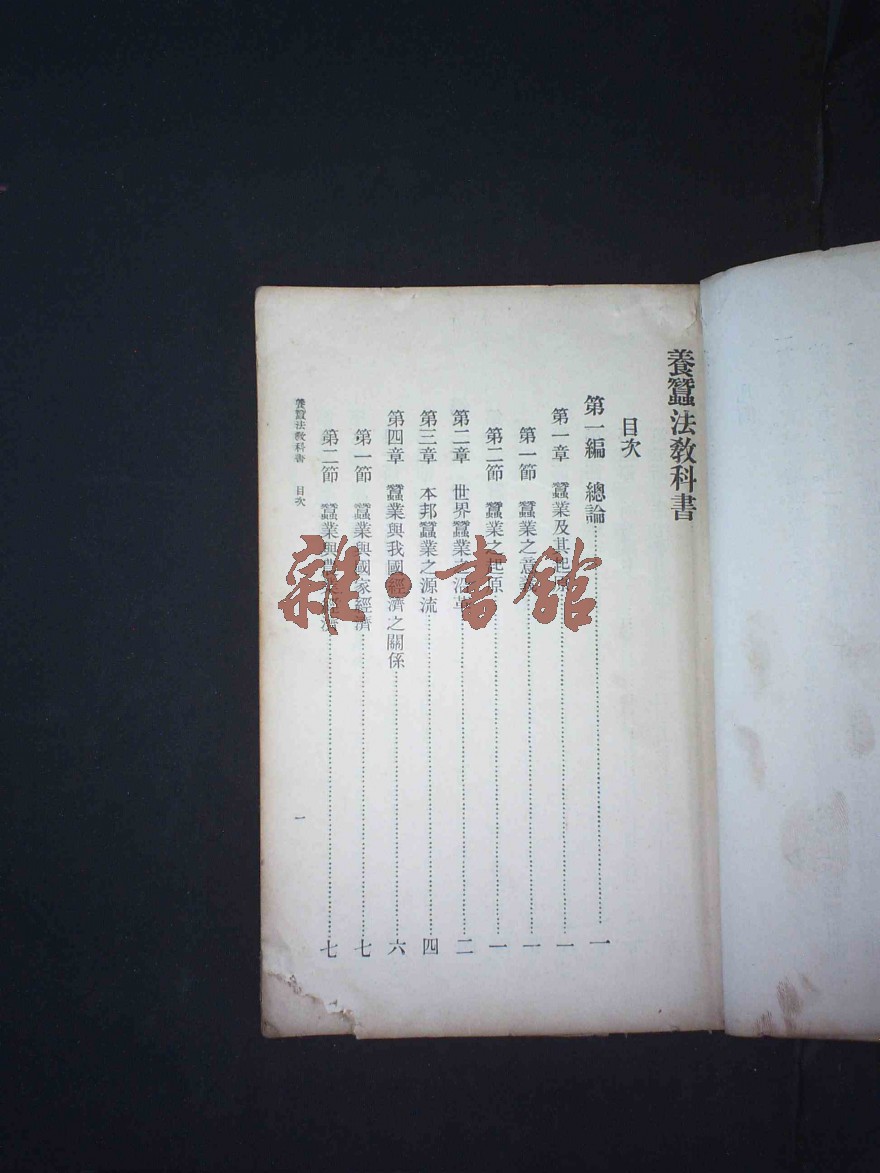 養蠶法教科書
目次
第一編 總論……一
第一章 蠶業及其起原……一
第一節 蠶業之意義……一
第二節 蠶業之起原……一
第二章 世界蠶業之沿革……二
第三章 本邦蠶業之源流……四
第四章 蠶業與我國經濟之關係……六
第一節 蠶業與國家經濟……七
第二節 蠶業與農……七
養蠶法教科書 目次 一
雜·書館